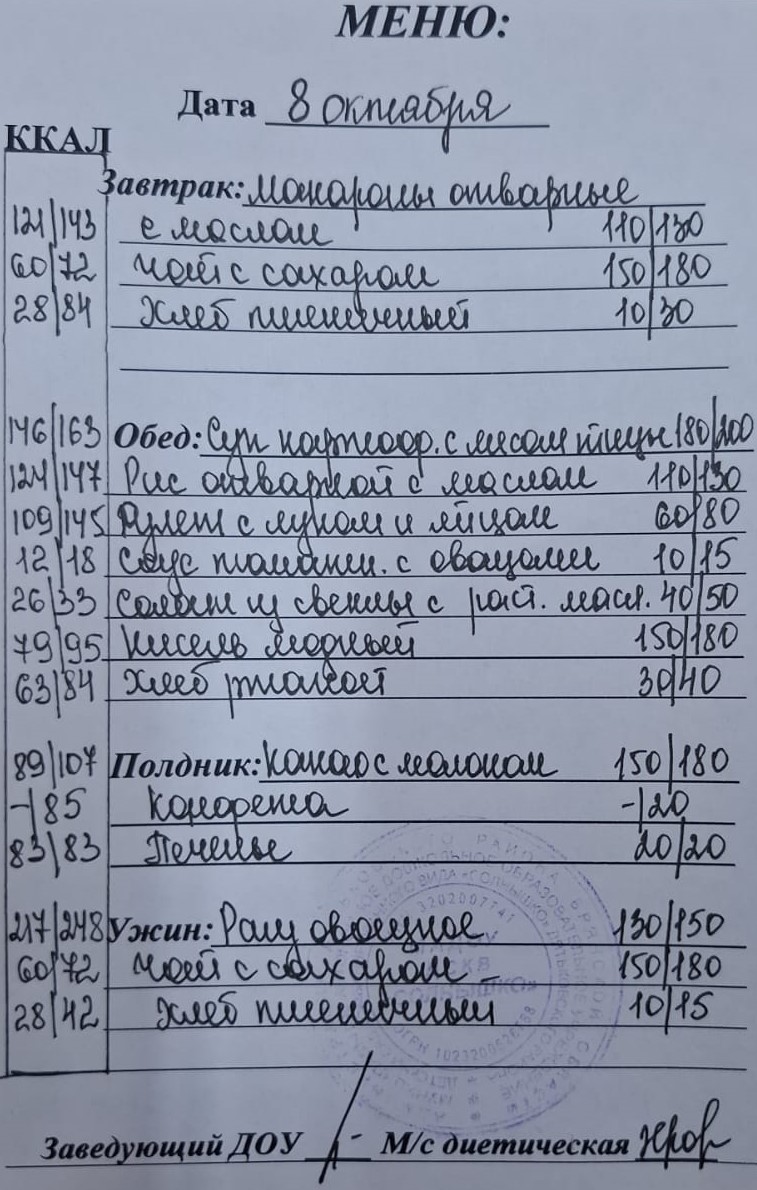 МЕНЮ:
Дата 8 октября
ККАЛ
Завтрак: Макароны отварные
121/143 с маслом 110/130
60/72 Чай с сахаром 150/180
28/84 Хлеб пшеничный 10/30
146/163 Обед: Суп картоф. с мясом птицы 180/200
124/147 Рис отварной с маслом 110/130
109/145 Рулет с луком и яйцом 60/80
12/18 Соус томатн. с овощами 10/15
26/33 Салат из свеклы с раст. масл. 40/50
79/95 Кисель ягодный 150/180
63/84 Хлеб ржаной 30/40
89/107 Полдник: Какао с молоком 150/180
-/85 Конфета -/20
83/83 Печенье 20/20
217/248 Ужин: Рагу овощное 130/150
60/72 Чай с сахаром 150/180
28/42 Хлеб пшеничный 10/15
Заведующий ДОУ М/с диетическая